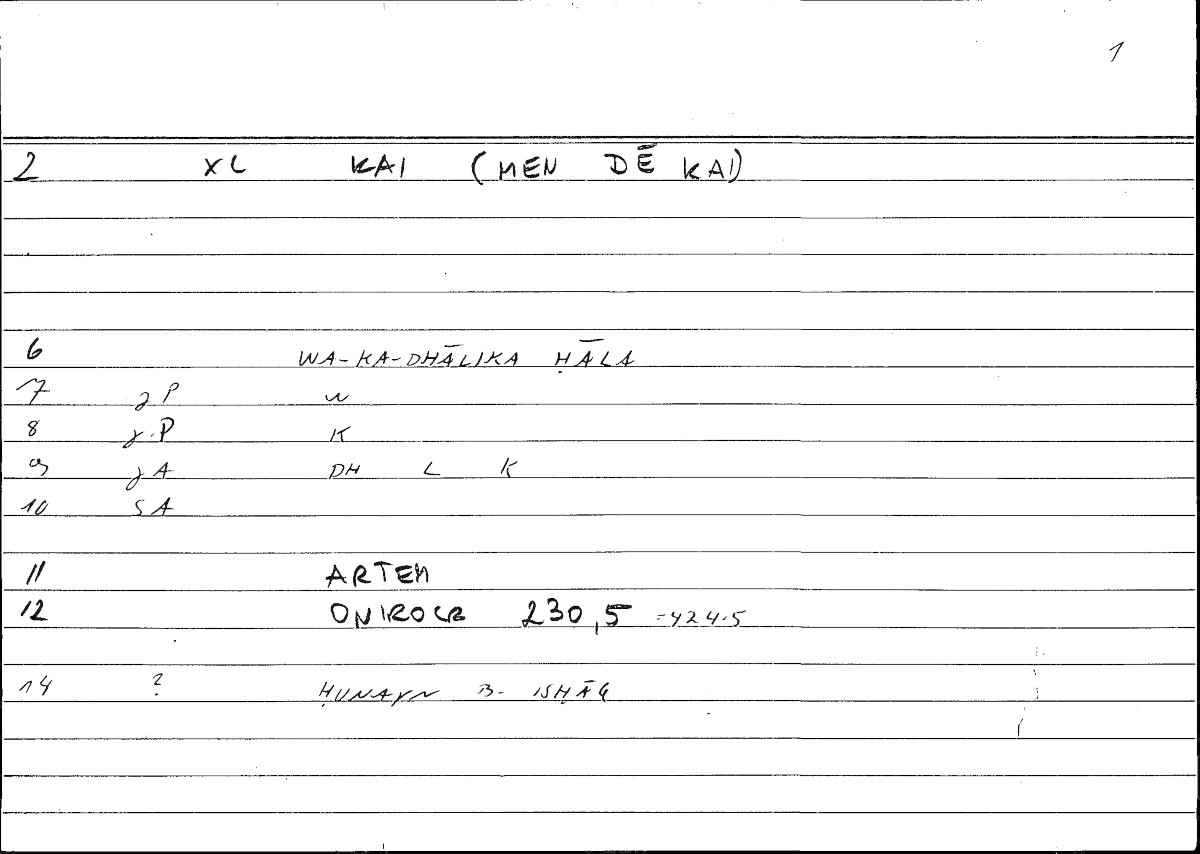 1
2 XL KAI (MEN DĒ KAI)
6 WA-KA-DHĀLIKA ḤĀLA
7 P W
8 P K
9 A DH L K
10 SA
11 ARTEM
12 ONIROCR 230,5 =424.5
14 ? ḤUNAYN B- ISḤĀQ